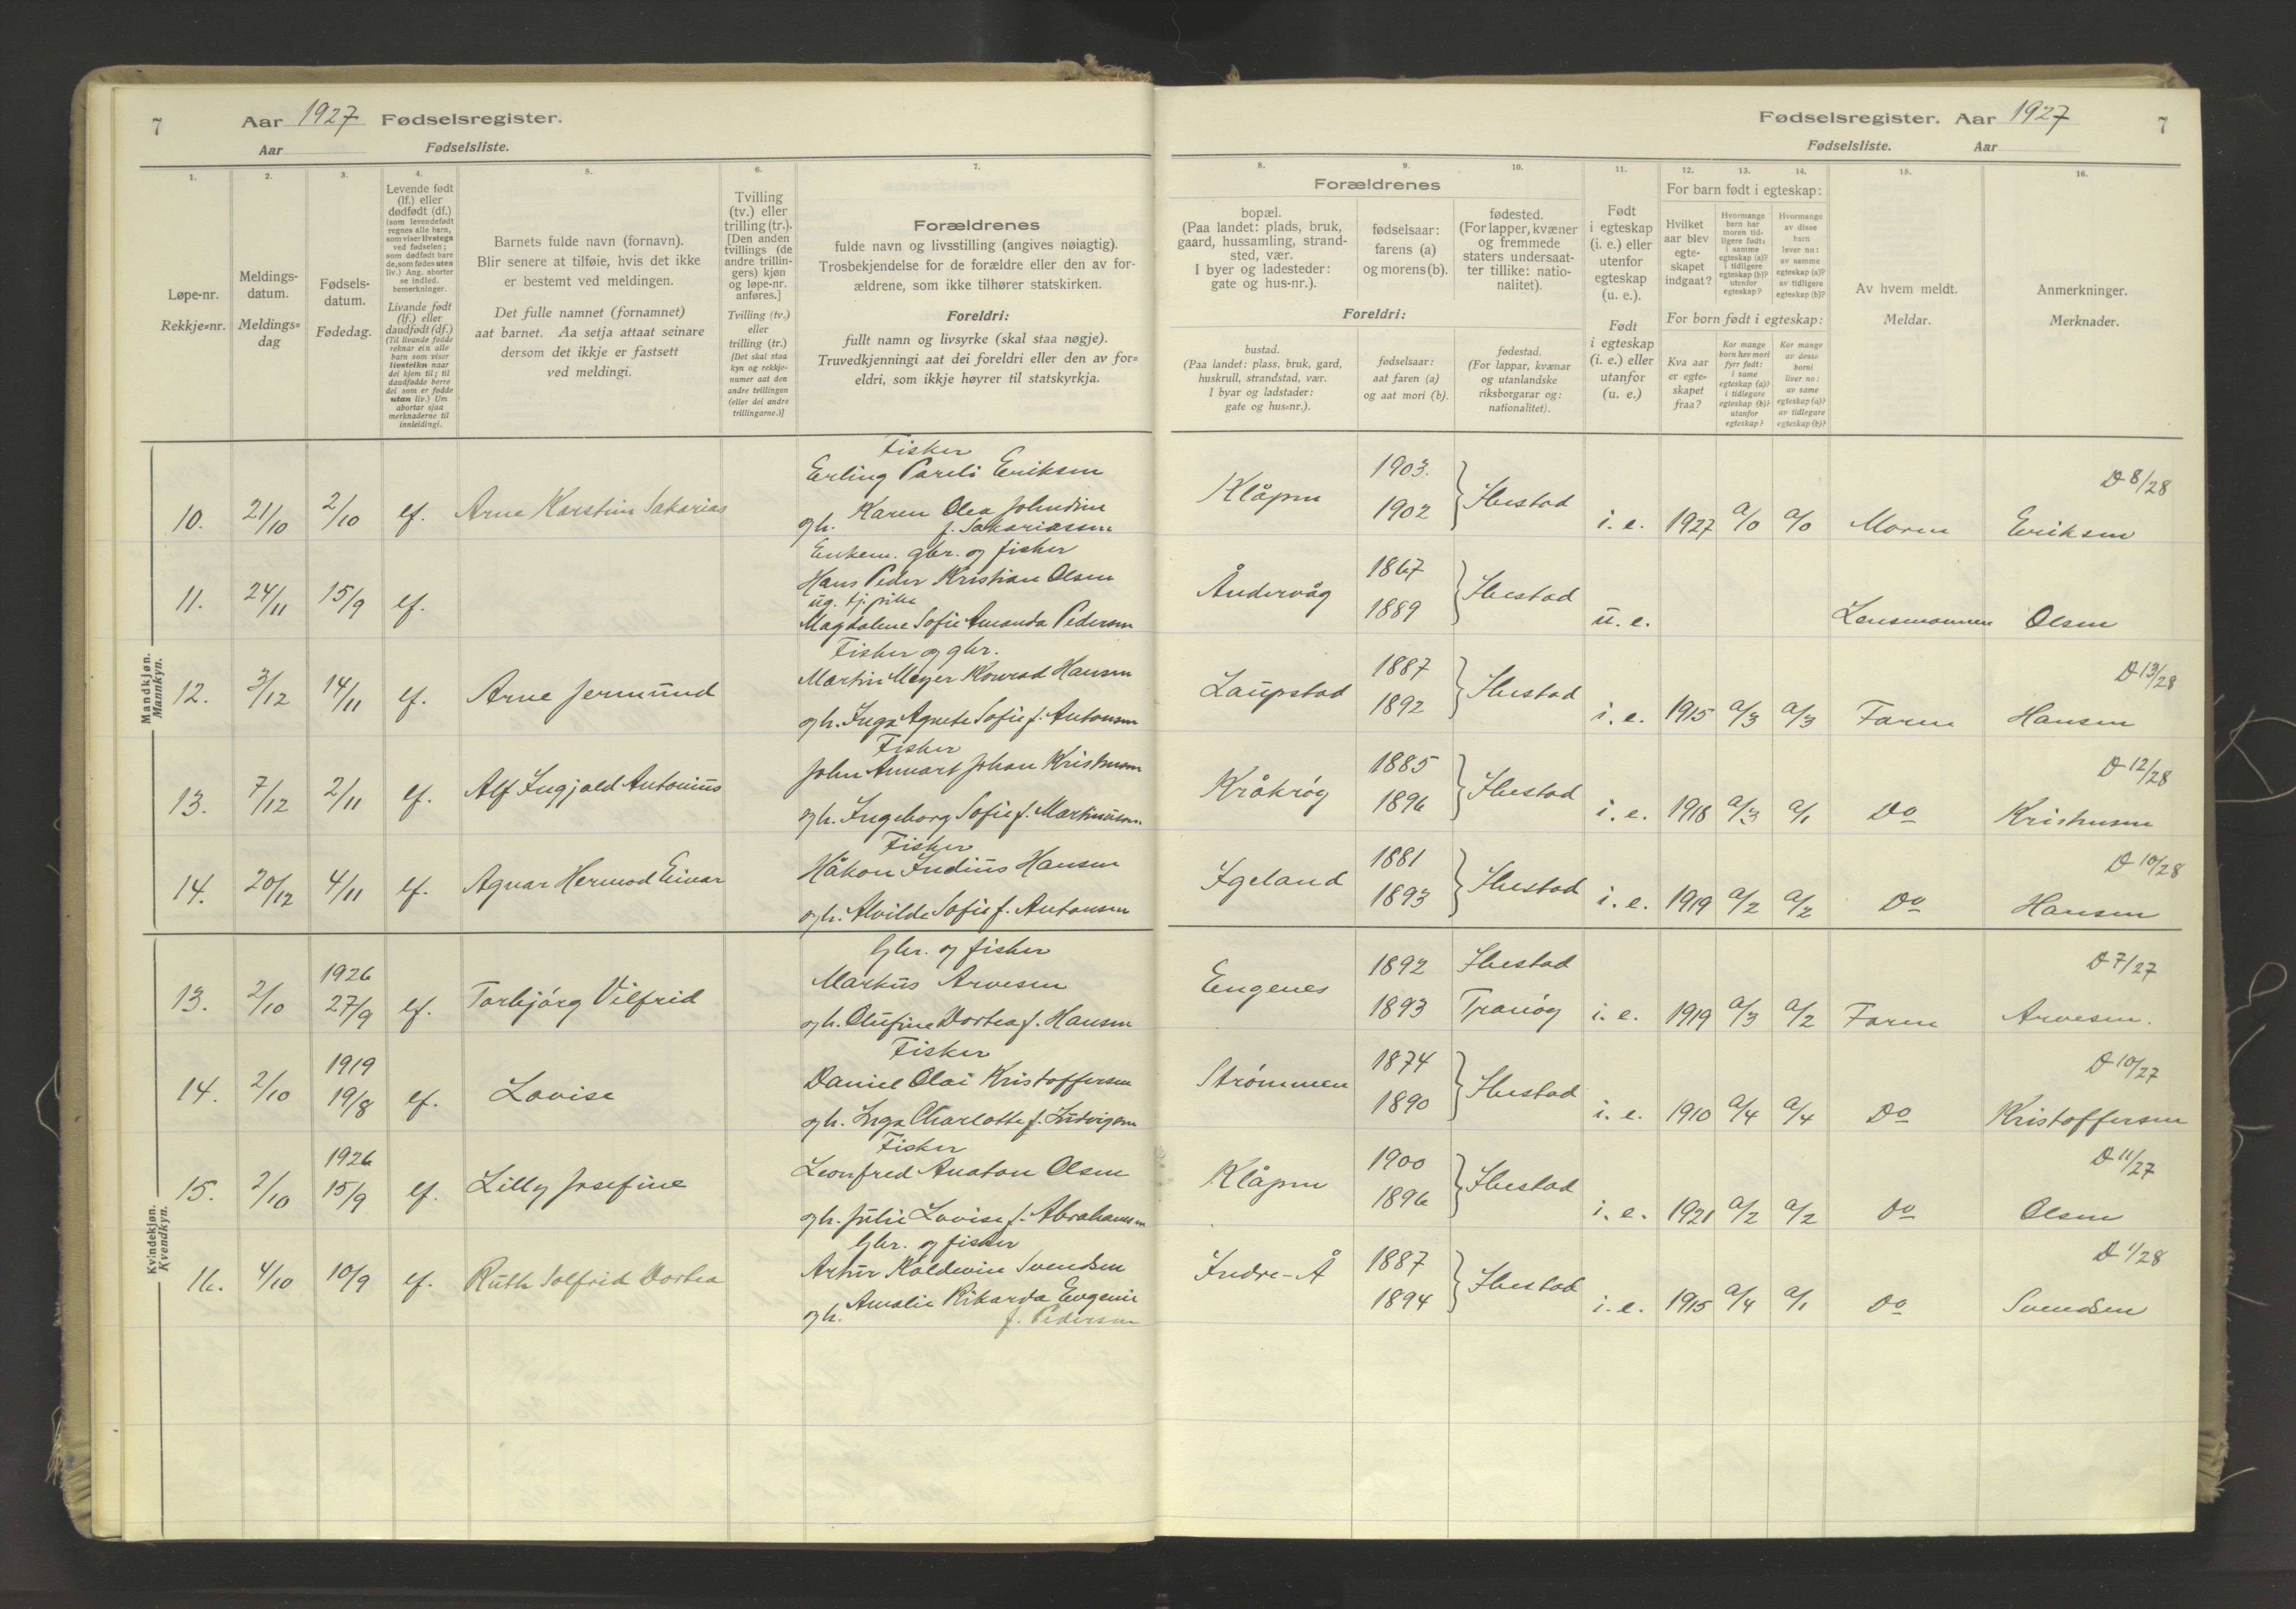 7
Aar 1927 Fødselsregister.
Aar
Fødselsliste.
1.
2.
3.
4.
5.
6.
7.
Løpe-nr.
Rekkje=nr.
Meldings-
datum.
Meldings=
dag
Fødsels-
datum.
Fødedag.
Levende født
(lf.) eller
dødfødt (df.)
(som levendefødt
regnes alle barn,
som viser livstegn
ved fødselen;
som dødfødt bare
de, som fødes uten
liv.) Ang. aborter
se indled.
bemerkninger.
Livande født
(lf.) eller
daudfødt (df.)
(Til livande fødde
reknar ein alle
barn som viser
livsteikn naar
dei kjem til; til
daudfødde berre
dei som er fødde
utan liv.) Um
abortar sjaa
merknaderne til
innleidingi.
Barnets fulde navn (fornavn).
Blir senere at tilføie, hvis det ikke
er bestemt ved meldingen.
Det fulle namnet (fornamnet)
aat barnet. Aa setja attaat seinare
dersom det ikkje er fastsett
ved meldingi.
Tvilling
(tv.) eller
trilling (tr.).
[Den anden
tvillings (de
andre trillin-
gers) kjøn
og løpe-nr.
anføres.]
Tvilling (tv.)
eller
trilling (tr.)
[Det skal staa
kyn og rekkje-
numer aat den
andre tvillingen
(eller dei andre
trillingarne.)]
Forældrenes
fulde navn og livsstilling (angives nøiagtig).
Trosbekjendelse for de forældre eller den av for-
ældrene, som ikke tilhører statskirken.
Foreldri:
fullt namn og livsyrke (skal staa nøgje).
Truvedkjenningi aat dei foreldri eller den av for=
eldri, som ikkje høyrer til statskyrkja.
Mandkjøn.
Mannkyn.
10. 21/10 2/10 lf. Arne Karstein Sakarias
Fisker
Erling Pareli Eriksen
og h. Karen Olea Johndine
f. Sakariassen
11. 24/11 15/9 lf.
Enkem. gbr. og fisker
Hans Peder Kristian Olsen
ug. tj. pike
Magdalene Sofie Amanda Pedersen
12. 3/12 14/11 lf. Arne Jermund
Fisker og gbr.
Martin Meyer Konrad Hansen
og h. Inga Agnete Sofie f. Antonsen
13. 7/12 2/11 lf. Alf Ingjald Antonius
Fisker
John Annart Johan Kristensen
og h. Ingeborg Sofie f. Martinussen
14. 20/12 4/11 lf. Agnar Hermod Einar
Fisker
Håkon Indius Hansen
og h. Alvilde Sofie f. Antonsen
Kvindekjøn.
Kvendkyn.
13. 2/10 1926 27/9 lf. Torbjørg Vilfrid
Gbr. og fisker
Markus Arvesen
og h. Olufine Dortea f. Hansen
14. 2/10 1919 19/8 lf. Lovise
Fisker
Daniel Olai Kristoffersen
og h. Inga Charlotte f. Ludvigsen
15. 2/10 1926 15/9 lf. Lilly Josefine
Fisker
Leonfred Anaton Olsen
og h. Julie Lovise f. Abrahamsen
16. 4/10 10/9 lf. Ruth Solfrid Dortea
Gbr. og fisker
Artur Koldevin Svendsen
og h. Amalie Rikarda Eugenie
f. Pedersen
Fødselsregister. Aar 1927
7
Fødselsliste.
Aar
8.
9.
10.
11.
12.
13.
14.
15.
16.
Forældrenes
bopæl.
(Paa landet: plads, bruk,
gaard, hussamling, strand-
sted, vær.
I byer og ladesteder:
gate og hus-nr.).
fødselsaar:
farens (a)
og morens (b).
fødested.
(For lapper, kvæner
og fremmede
staters undersaat-
ter tillike: natio-
nalitet).
Foreldri:
bustad.
(Paa landet: plass, bruk, gard,
huskrull, strandstad, vær.
I byar og ladstader:
gate og hus=nr.).
fødselsaar:
aat faren (a)
og aat mori (b).
fødestad.
(For lappar, kvænar
og utanlandske
riksborgarar og:
nationalitet).
Født
i egteskap
(i. e.) eller
utenfor
egteskap
(u. e.).
Født
i egteskap
(i. e.) eller
utanfor
(u. e.)
For barn født i egteskap:
Hvilket
aar blev
egte-
skapet
indgaat?
Hvormange
barn har
moren tid-
ligere født:
i samme
egteskap (a)?
i tidligere
egteskap (b)?
utenfor
egteskap?
Hvormange
av disse
barn
lever nu:
av samme
egteskap (a)?
av tidligere
egteskap (b)?
For born født i egteskap:
Kva aar
er egte-
skapet
fraa?
Kor mange
born hev mori
fyrr født:
i same
egteskap (a)?
i tidlegare
egteskap (b)?
utanfor
egteskap?
Kor mange
av desse
borni
liver no:
av same
egteskap (a)?
av tidlegare
egteskap (b)?
Av hvem meldt.
Meldar.
Anmerkninger.
Merknader.
Klåpen 1903. 1902 } Ibestad i. e. 1927 a/0 a/0 Moren D 8/28 Eriksen
Åndervåg 1867 1889 } Ibestad u. e. Lensmannen Olsen
Laupstad 1887 1892 } Ibestad i. e. 1915 a/3 a/3 Faren D 13/28 Hansen
Kråkrøy 1885 1896 } Ibestad i. e. 1918 a/3 a/1 Do D 12/28 Kristensen
Igeland 1881 1893 } Ibestad i. e. 1919 a/2 a/2 Do D 10/28 Hansen
Engenes 1892 Ibestad 1893 Tranøy i. e. 1919 a/3 a/2 Faren D 7/27 Arvesen.
Strømmen 1874 1890 } Ibestad i. e. 1910 a/4 a/4 Do D 10/27 Kristoffersen
Klåpen 1900 1896 } Ibestad i. e. 1921 a/2 a/2 Do D 11/27 Olsen
Indre-Å 1887 1894 } Ibestad i. e. 1915 a/4 a/1 Do D 1/28 Svendsen